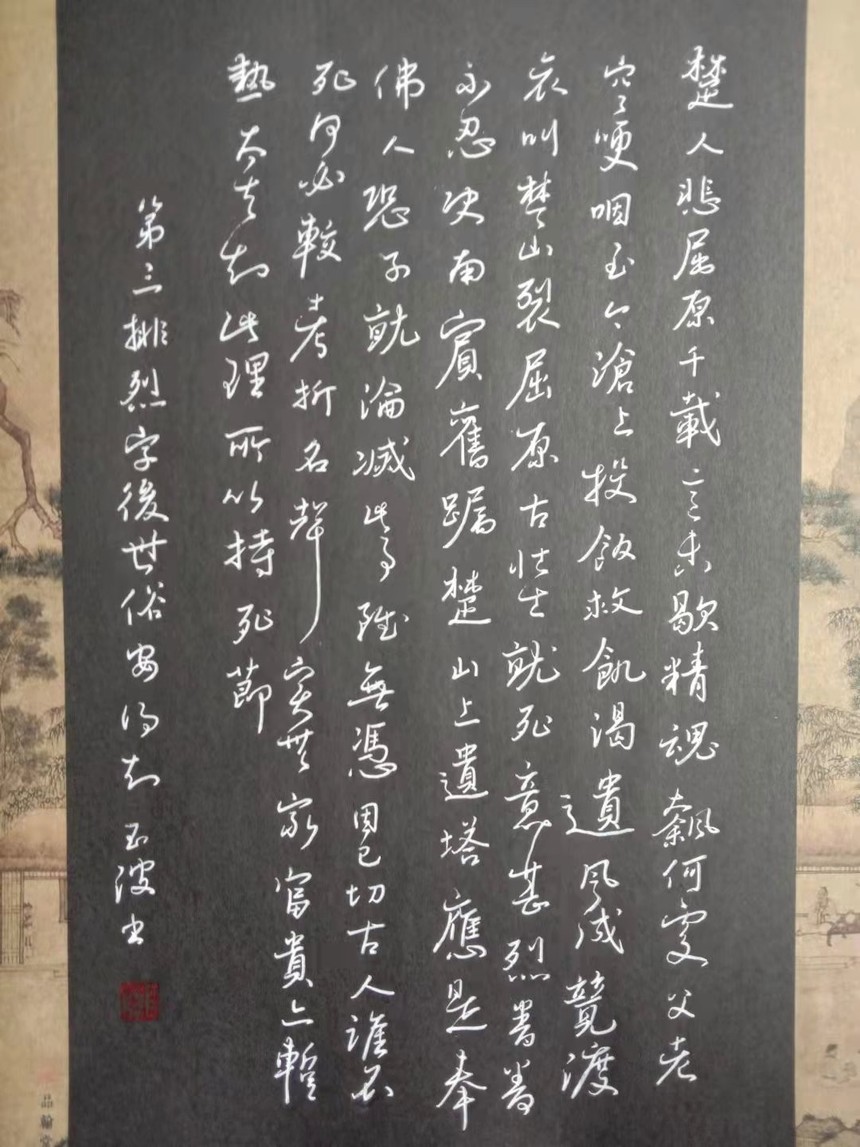 楚人悲屈原千載意未歇精魂飄何處父老
空哽咽至今滄上投飯救飢渴遺風成競渡
哀叫楚山裂屈原古壯士就死意甚烈眷眷
不忍決南賓舊屬楚山上遺塔應是奉
佛人恐子就淪滅此事雖無憑固已切古人誰不
死何必較考折名聲實無窮富貴亦暫
熱大夫知此理所以持死節
第三排烈字後世俗安得知 玉波书
品翰堂